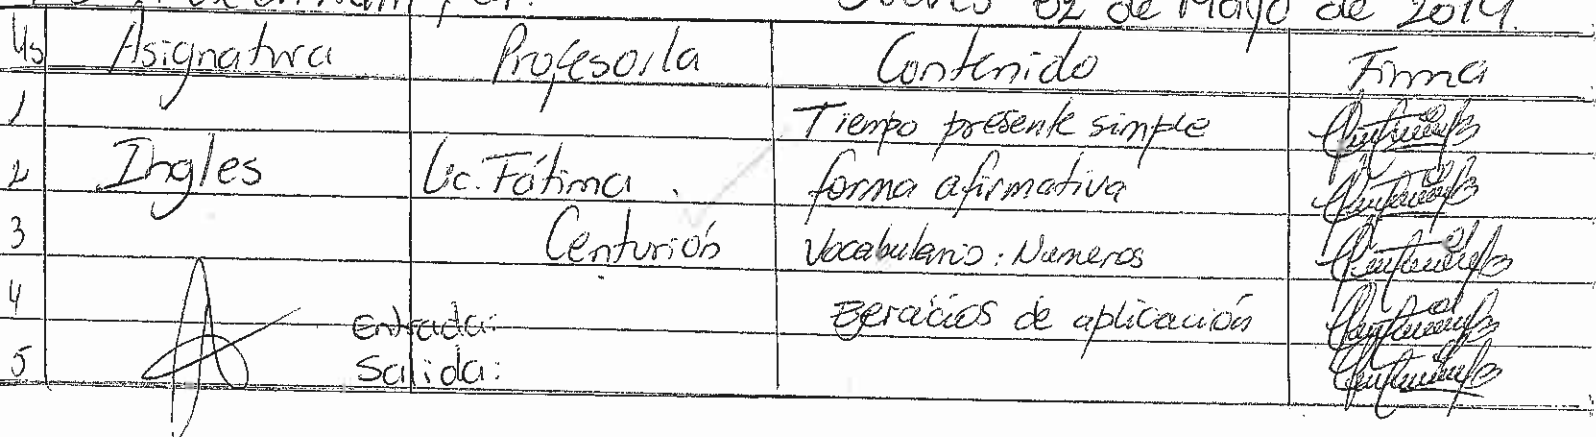 Jueves 02 de Mayo de 2019.
Hs Asignatura Profesor/a Contenido Firma
1 Tiempo presente simple
2 Ingles Lic. Fátima forma afirmativa
3 Centurión Vocabulario: Numeros
4 Ejercicios de aplicación
Entrada:
5 Salida: